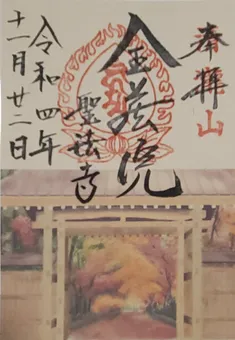 奉拝
山
金蔵院
聖法寺
令和四年
十一月廿二日